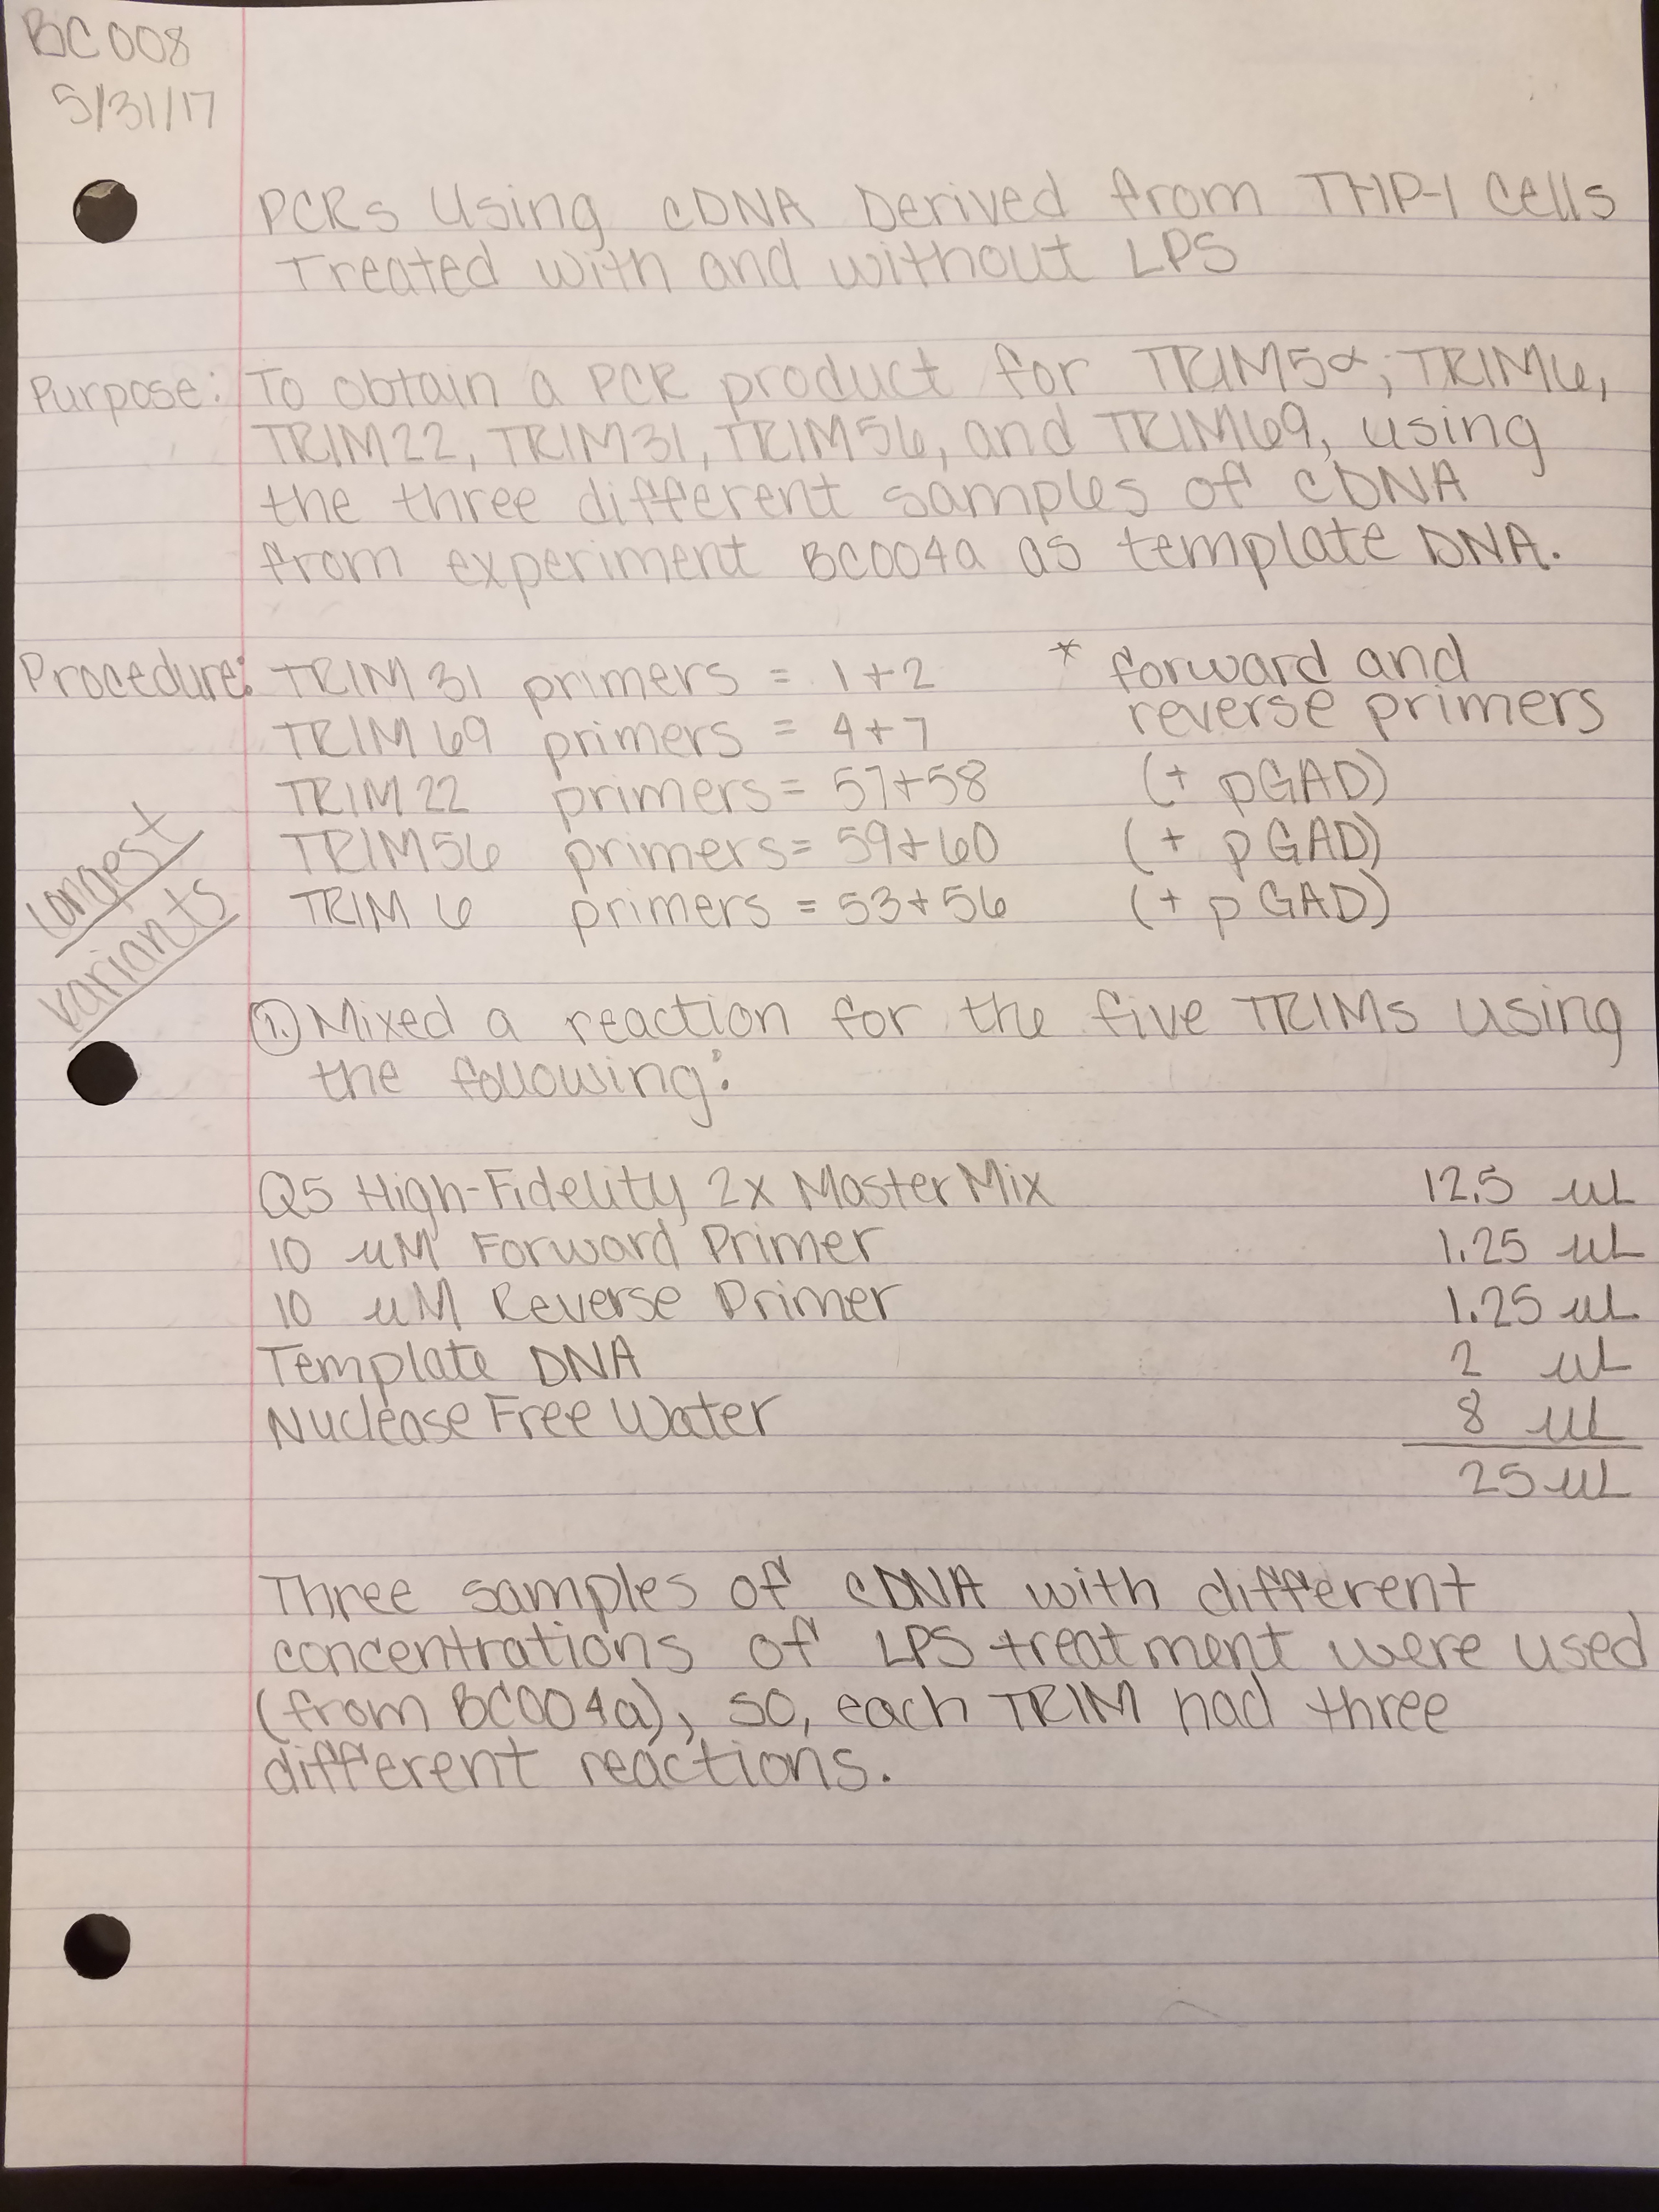 BC008
5/31/17
PCRs Using cDNA Derived from THP-1 Cells
Treated with and without LPS
Purpose: To obtain a PCR product for TRIM5α, TRIM6,
TRIM22, TRIM31, TRIM56, and TRIM69, using
the three different samples of cDNA
from experiment BC004a as template DNA.
Procedure: TRIM 31 primers = 1+2 * forward and
reverse primers
TRIM 69 primers = 4+7
TRIM 22 primers = 57+58 (+ pGAD)
TRIM56 primers = 59+60 (+ pGAD)
TRIM 6 primers = 53+56 (+ pGAD)
Longest
variants
1. Mixed a reaction for the five TRIMs using
the following:
Q5 High-Fidelity 2x Master Mix 12.5 uL
10 uM Forward Primer 1.25 uL
10 uM Reverse Primer 1.25 uL
Template DNA 2 uL
Nuclease Free Water 8 uL
25 uL
Three samples of cDNA with different
concentrations of LPS treatment were used
(from BC004a), so, each TRIM had three
different reactions.